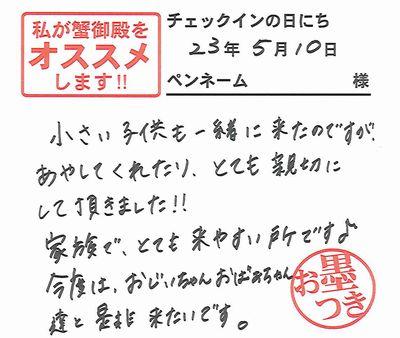 私が蟹御殿を
オススメ
します!!
チェックインの日にち
23年5月10日
ペンネーム 様
小さい子供も一緒に来たのですが、
あやしてくれたり、とても親切に
して頂きました!!
家族で、とても来やすい所です♪
今度は、おじいちゃんおばあちゃん
達と是非来たいです。
お墨つき